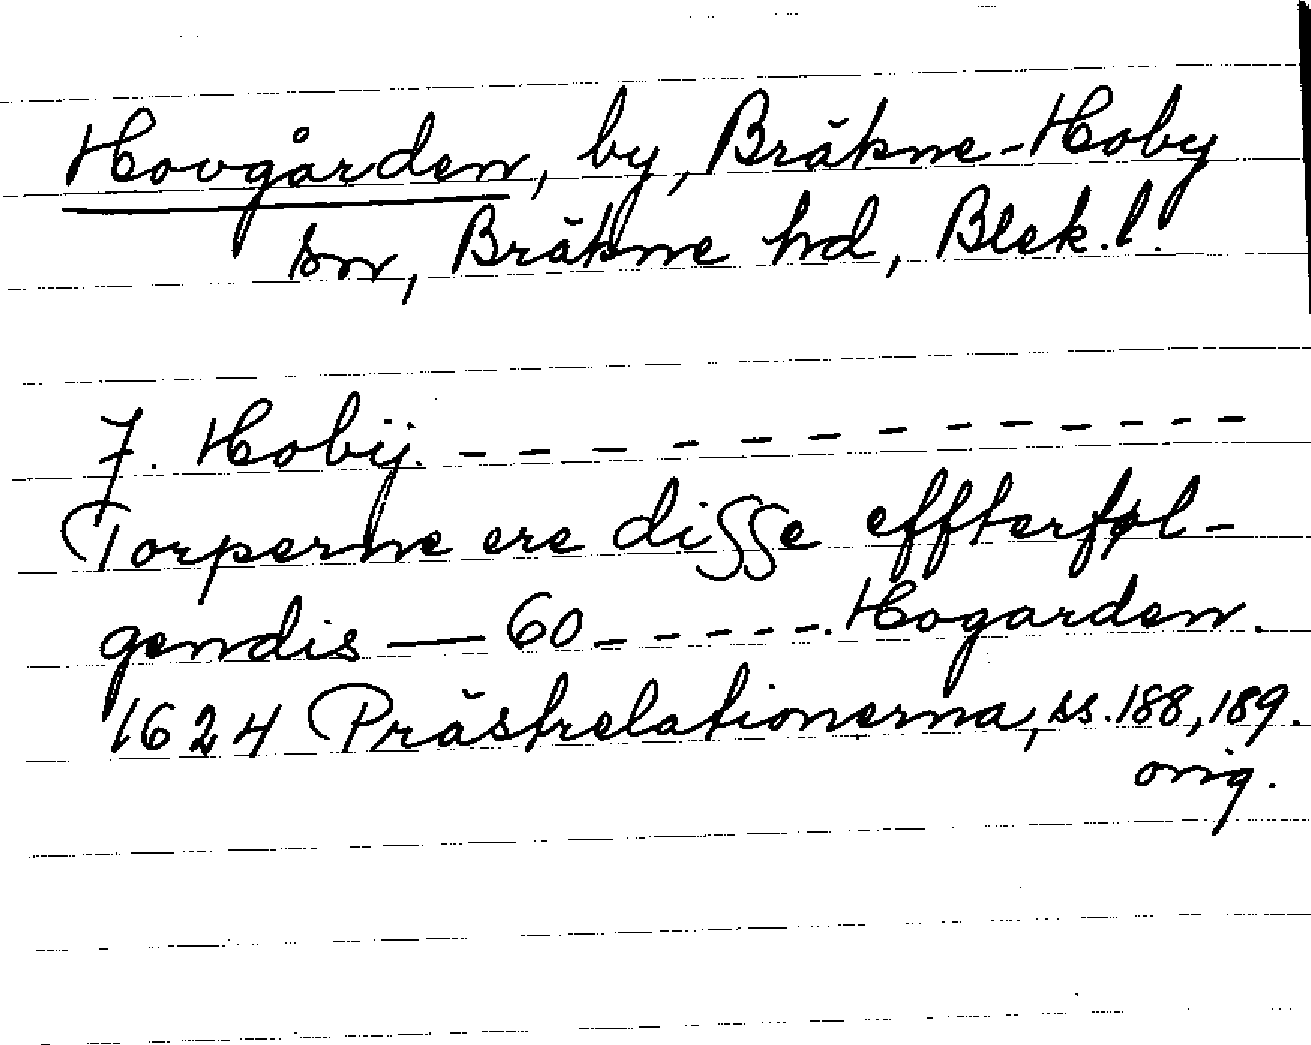 Hovgården, by, Bräkne-Hoby
sn, Bräkne hd, Blek. l.
7. Hobÿ. - - - - - - - - - - - -
Torperne ere disse effterføl-
gendis — 60 - - - - - - Hogarden.
1624 Prästrelationerna, ss. 188, 189.
orig.